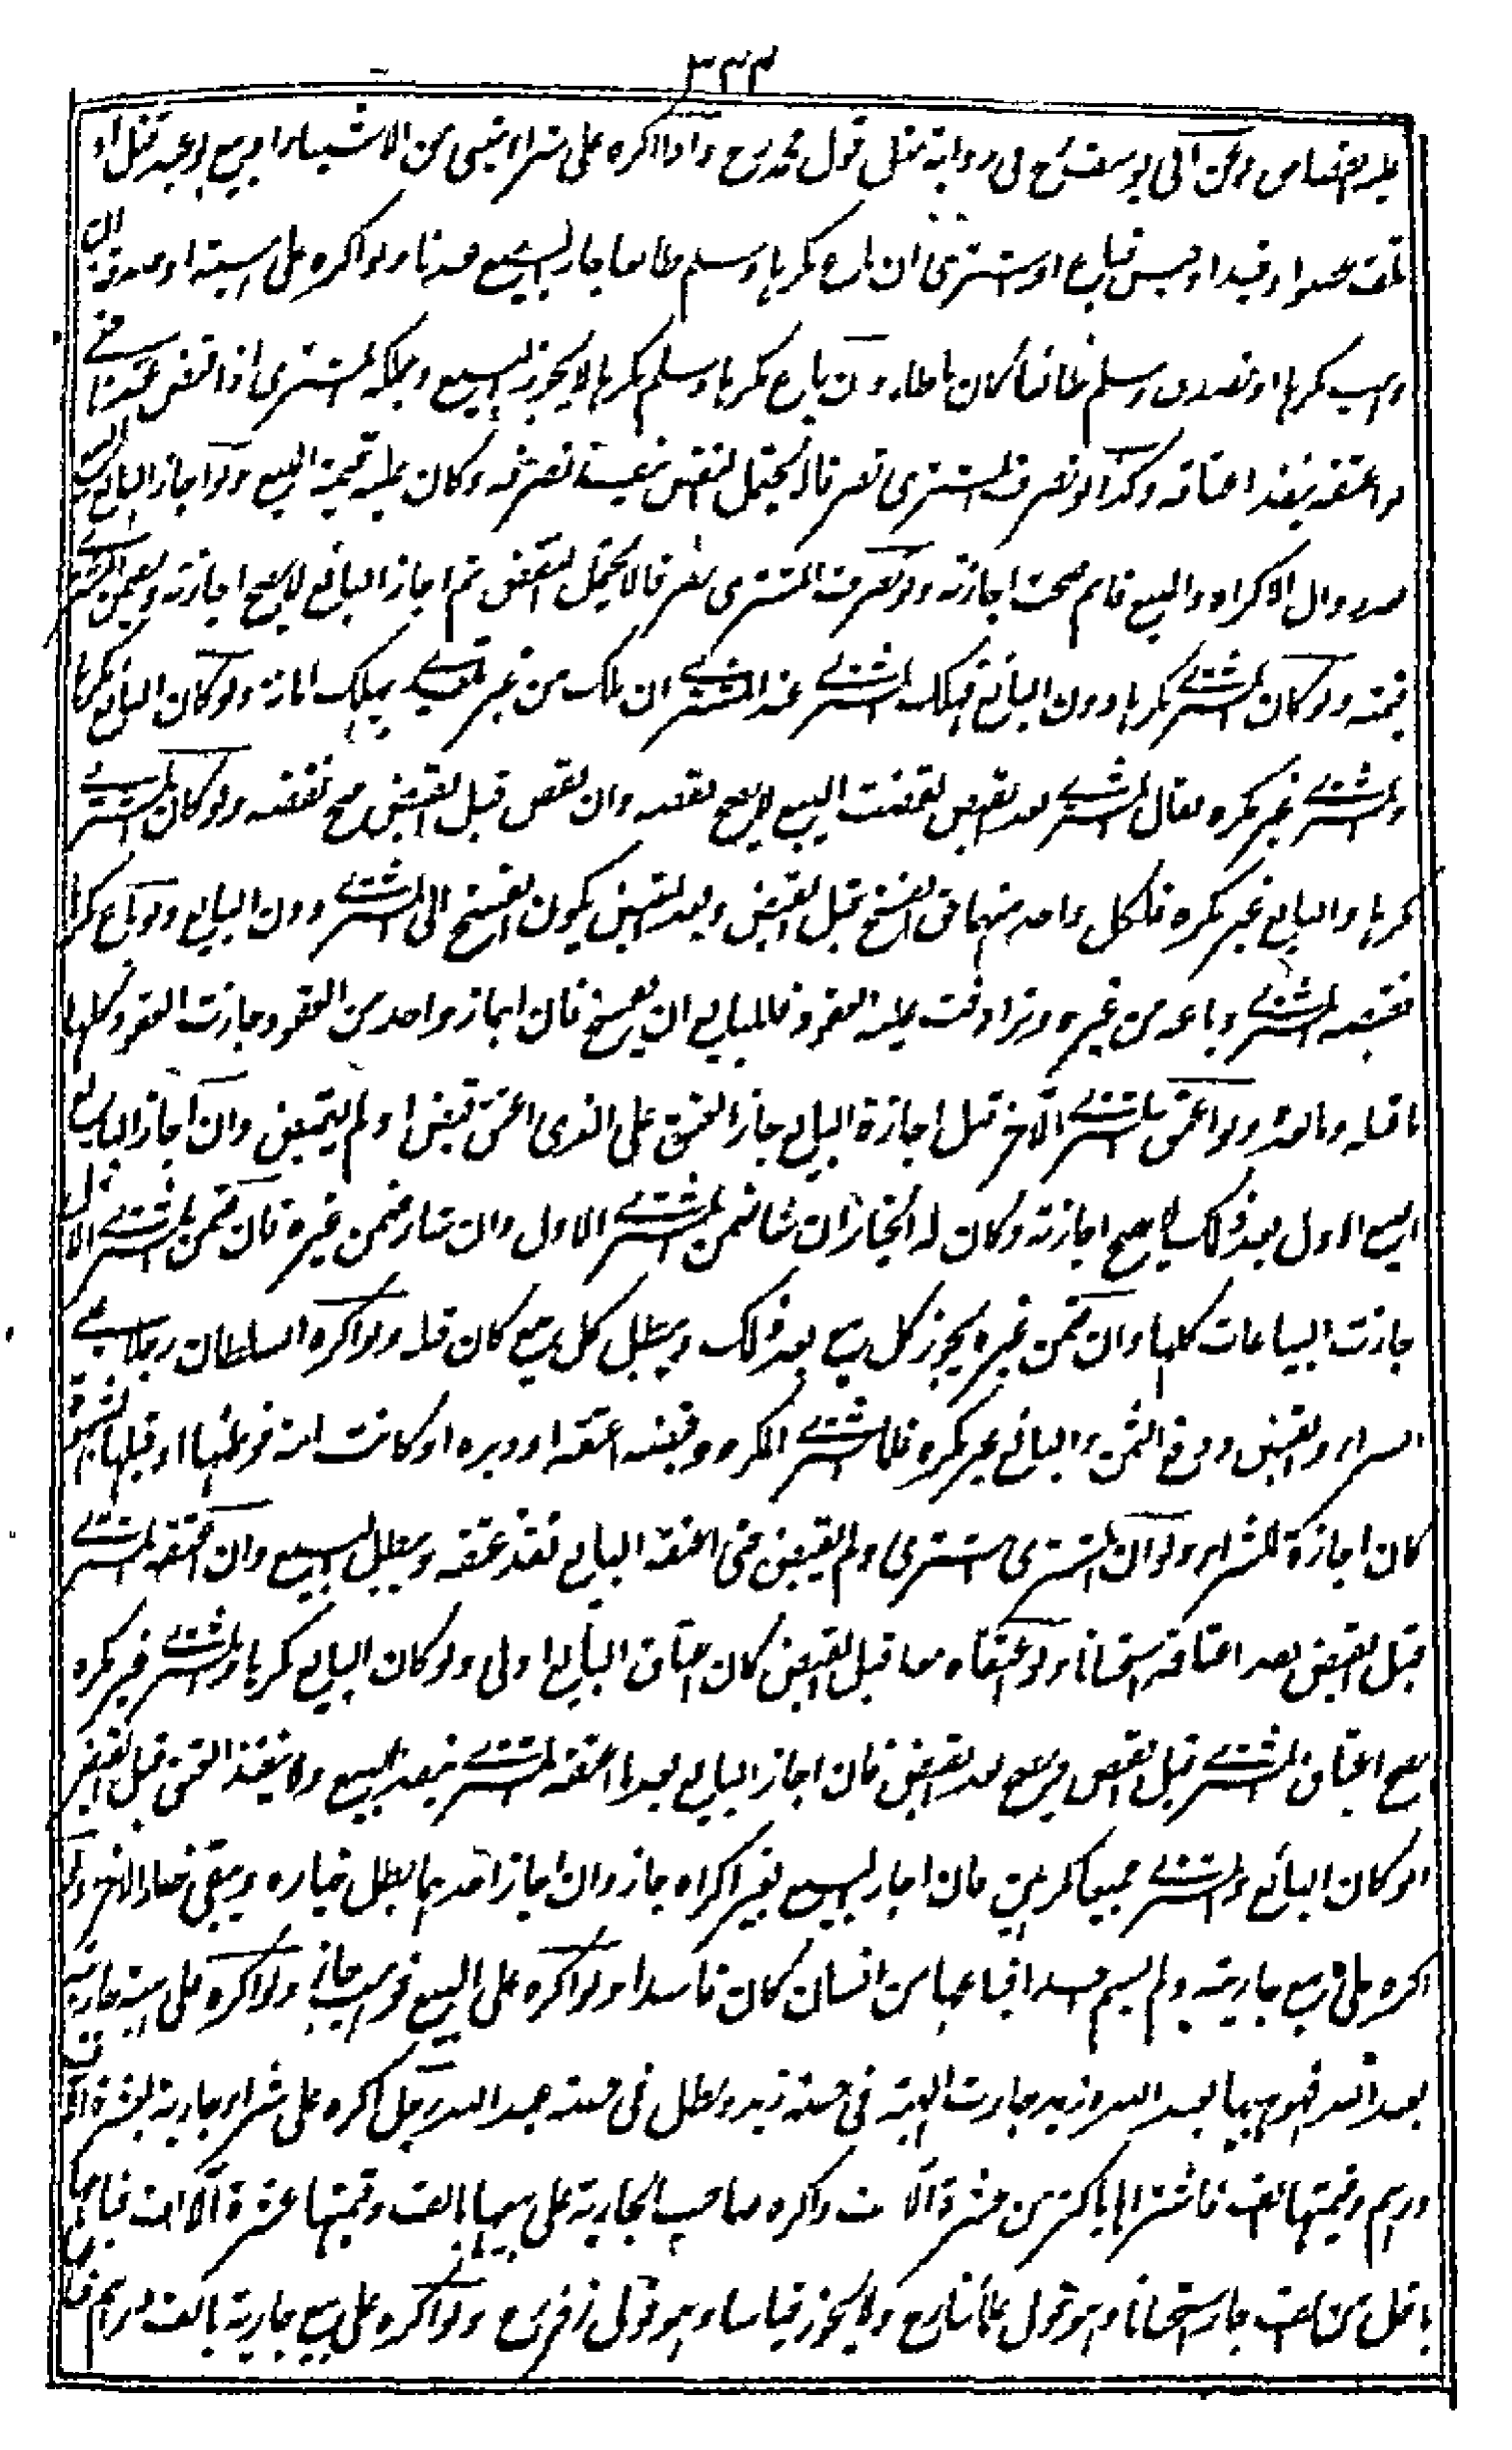 ٣٤٤
عليه القصاص وعن ابى يوسف رح فى رواية مثل قول محمد رح واذا اكره على شراء شيئ من الاشياء او بيع بوعيد قتل او
تلف عضو او قيد او حبس فباع او اشترى ان باع مكرها وسلم طائعا جاز البيع عندنا ولو اكره على الهبة او الصدقة ان
وهب مكرها او تصدق وسلم طائعا كان باطلا وان باع مكرها وسلم مكرها لا يجوز البيع ويملكه المشترى اذا اتصل القبض عندنا حتى
لو اعتقه ينفذ اعتاقه وكذا لو تصرف المشترى تصرفا لا يحتمل النقض ينفذ تصرفه وكان عليه قيمة المبيع ولو اجاز البائع البيع
بعد زوال الاكراه والمبيع قائم صحت اجازته ولو تصرف المشترى تصرفا لا يحتمل النقض ثم اجاز البائع لا يصح اجازته ويضمن المشترى
قيمته ولو كان المشترى مكرها دون البائع فهلك المشترى عند المشترى ان هلك من غير تعديه يهلك امانة ولو كان البائع مكرها
والمشترى غير مكره فقال المشترى بعد القبض نقضت البيع لا يصح نقضه وان نقض قبل القبض صح نقضه ولو كان المشترى
مكرها والبايع غير مكره فلكل واحد منهما حق الفسخ قبل القبض وبعد القبض يكون الفسخ الى المشترى دون البايع ولو باع مكرها
فقبضه المشترى وباعه من غيره وترادفت عليه العقود فللبايع ان يفسخ فان اجاز واحد من العقود جازت العقود كلها
ما قبله وما بعده ولو اعتق المشترى الآخر قبل اجازة البايع جاز العتق على الذى اعتق قبض او لم يقبض وان اجاز البايع
البيع الاول بعد ذلك لا يصح اجازته وكان له الخيار ان شاء ضمن المشترى الاول وان شاء ضمن غيره فان ضمن المشترى الاول
جازت البياعات كلها وان ضمن غيره يجوز كل بيع بعد ذلك ويبطل كل بيع كان قبله ولو اكره السلطان رجلا على
الشراء والقبض ودفع الثمن والبائع غير مكره فلما اشترى المكره وقبضه اعتقه او دبره او كانت امة فوطئها او قبلها بشهوة
كان اجازة للشراء ولو ان المشترى اشترى ولم يقبض حتى اعتقه البايع نفذ عتقه ويبطل البيع وان اعتقه المشترى
قبل القبض نفذ اعتاقه استحسانا ولو اعتقاه معا قبل القبض كان اعتاق البايع اولى ولو كان البايع مكرها والمشترى غير مكره
يصح اعتاق المشترى قبل القبض ويصح بعد القبض فان اجاز البايع بعد ما اعتقه المشترى ينفذ البيع ولا ينفذ العتق قبل القبض
ولو كان البائع والمشترى جميعا مكرهين فان اجازا البيع بغير اكراه جاز وان اجاز احدهما بطل خياره ويبقى خيار الآخر ولو
اكره على بيع جاريته ولم يسم احدا فباعها من انسان كان فاسدا ولو اكره على البيع فوهب جاز ولو اكره على هبة جاريته
لعبد الله فوهبها لعبد الله وزيد جازت الهبة فى حصة زيد وبطل فى حصة عبد الله رجل اكره على شراء جارية بعشرة آلاف
درهم وقيمتها الف فاشتراها باكثر من عشرة آلاف واكره صاحب الجارية على بيعها بالف وقيمتها عشرة آلاف فباعها
باقل من الف جاز استحسانا وهو قول علمائنا رح ولا يجوز قياسا وهو قول زفر رح ولو اكره على بيع جارية بالف درهم فباع